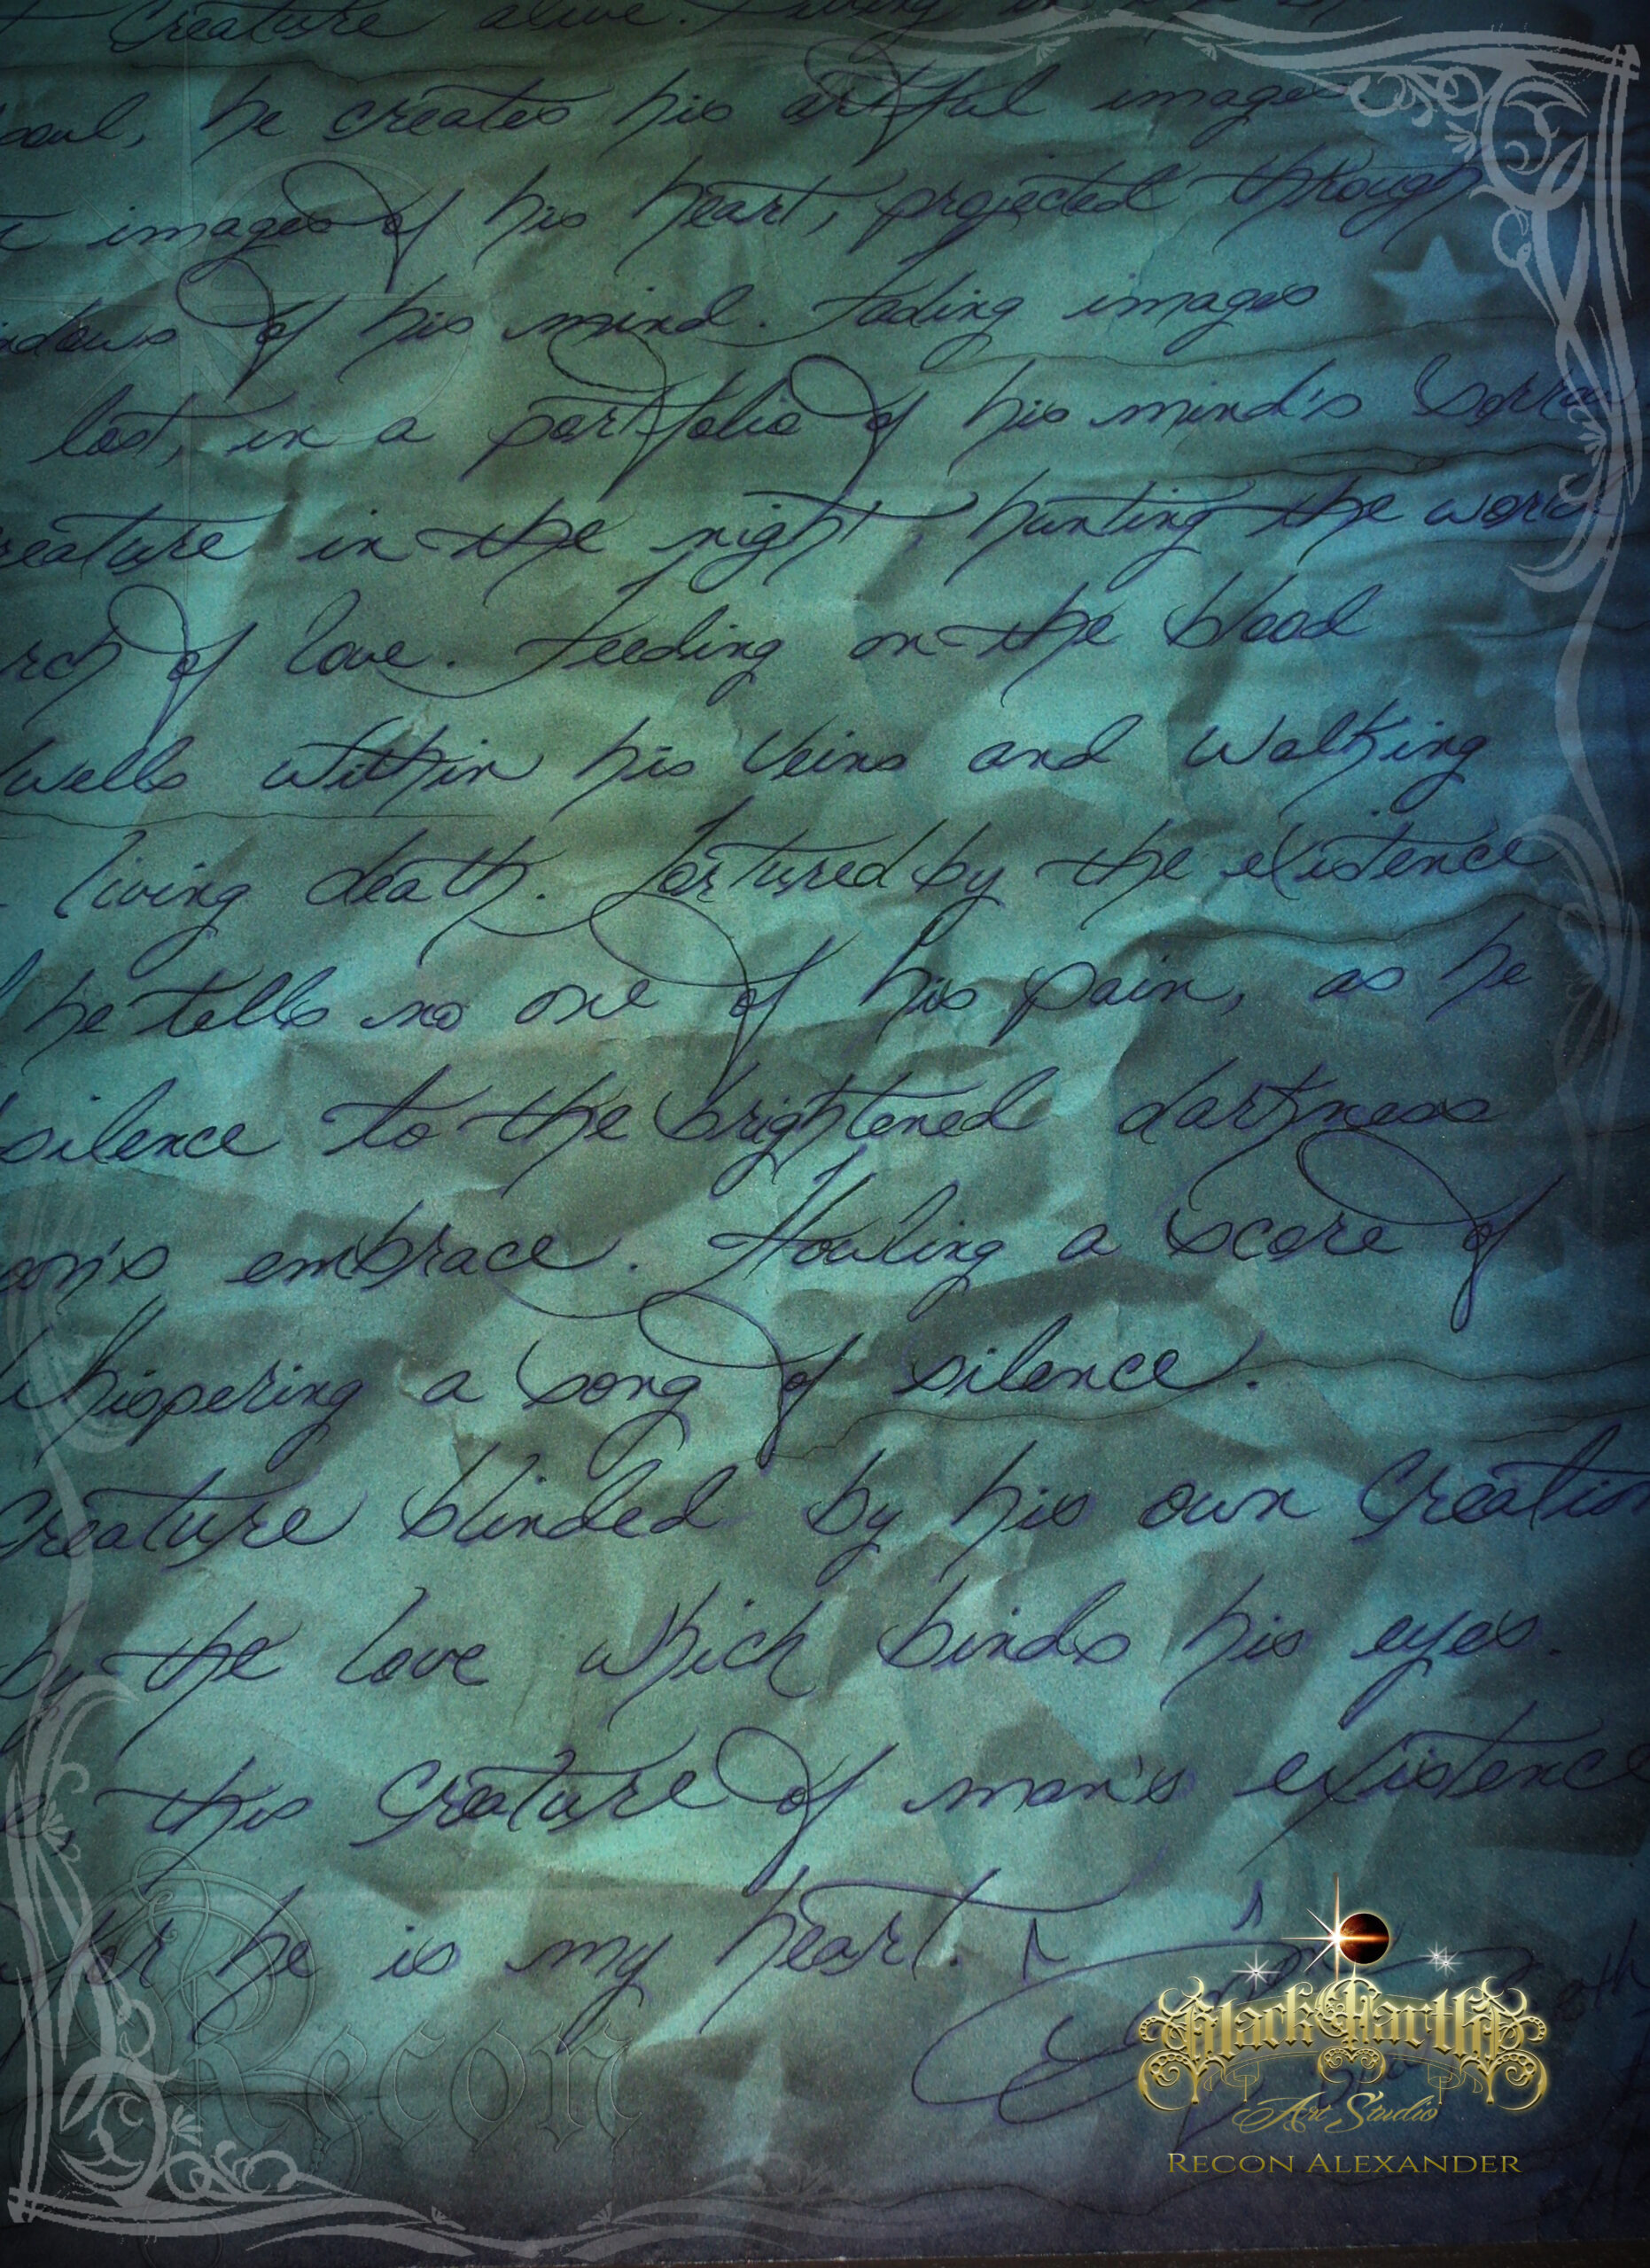 Creature alive. Living
soul, he creates his artful images
images of his heart, projected through
ndows of his mind. Fading images
lost, in a portfolio of his mind's
reature in the night, hunting the
rch of love. Feeding on the blood
wells within his veins and walking
living death. Tortured by the existence
he tells no one of his pain, as he
silence to the brightened darkness
on's embrace. Howling a score of
Whispering a song of silence.
Creature blinded by his own Creatio
by the love which binds his eyes.
this Creature of man's existence
for he is my heart.
Black Earth
Art Studio
Recon Alexander
Recon